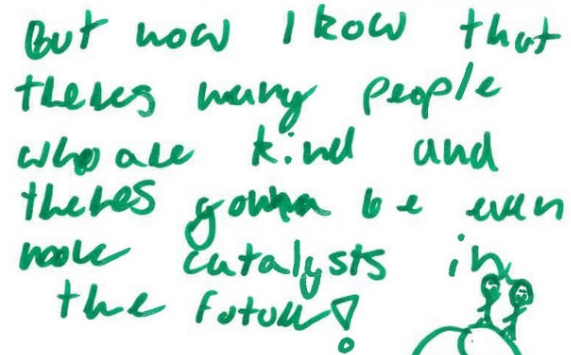 But now I kow that
theres many people
who are kind and
theres gonna be even
more catalysts in
the future!